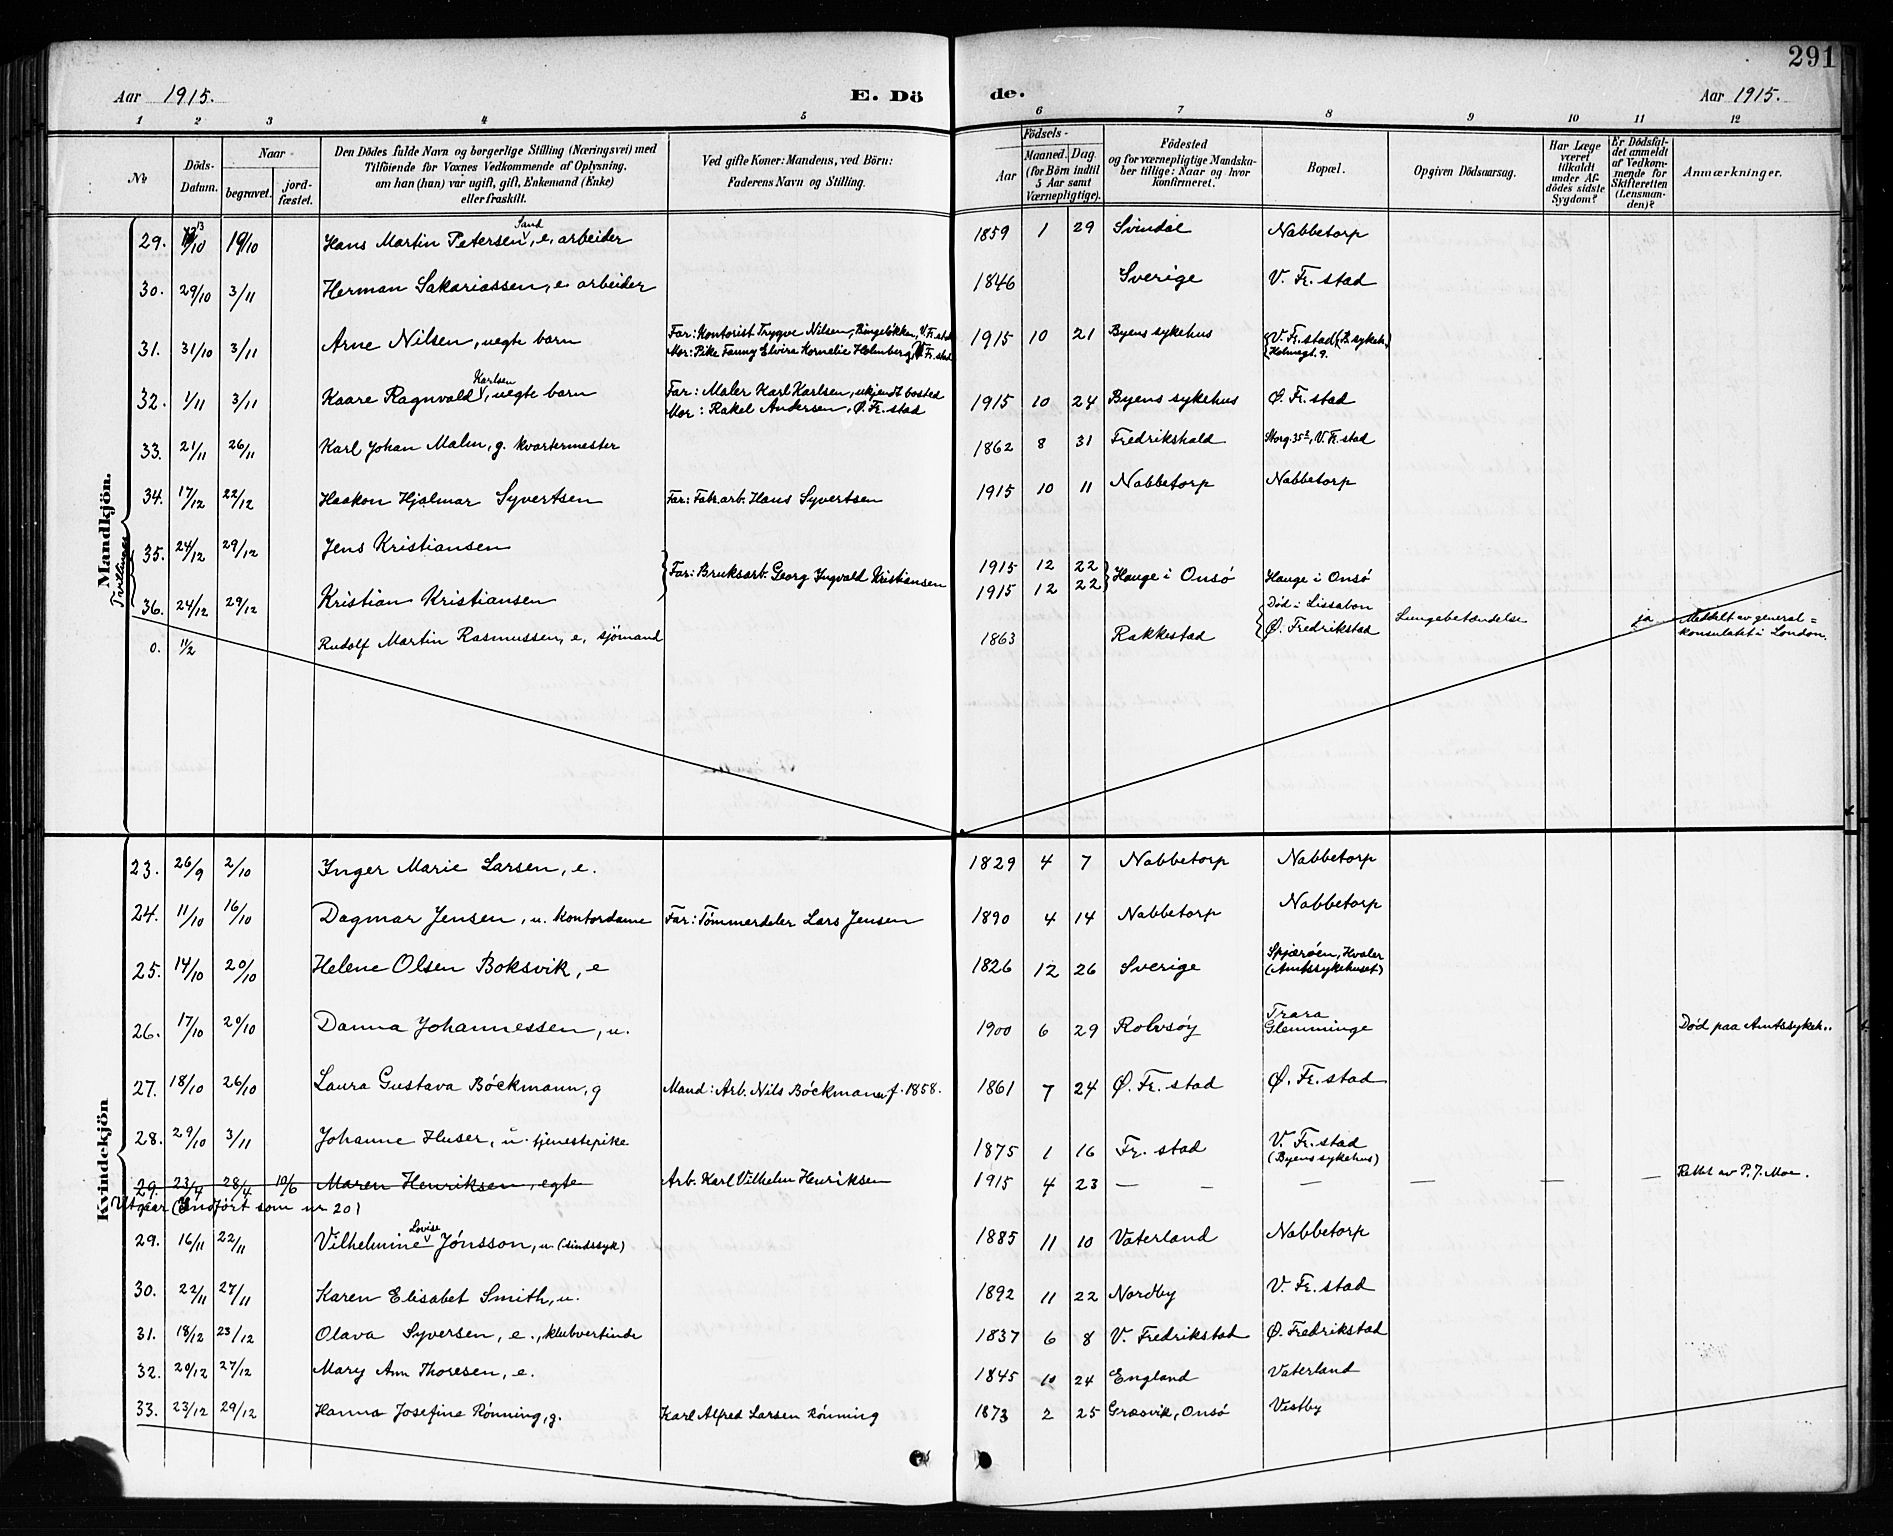 291
Aar 1915.
E. Dö
de.
Aar 1915.
1 2 3 4 5 6 7 8 9 10 11 12
№
Döds-
Datum.
Naar
begravet.
jord-
fæstet.
Den Dödes fulde Navn og borgerlige Stilling (Næringsvei) med
Tilföiende for Voxnes Vedkommende af Oplysning.
om han (hun) var ugift, gift, Enkemand (Enke)
eller fraskilt.
Ved gifte Koner: Mandens, ved Börn:
Faderens Navn og Stilling.
Födsels-
Aar
Maaned.
Dag
(for Börn indtil
5 Aar samt
Værnepligtige).
Födested
og for værnepligtige Mandska-
ber tillige: Naar og hvor
konfirmeret.
Bopæl.
Opgiven Dödsaarsag.
Har Læge
været
tilkaldt
under Af-
dödes sidste
Sygdom?
Er Dödsfal-
det anmeldt
af Vedkom-
mende for
Skifteretten
(Lensman-
den)?
Anmærkninger.
Mandkjön.
29. 13/10 19/10 Hans Martin Petersen Sand, e, arbeider 1859 1 29 Svindal Nabbetorp
30. 29/10 3/11 Herman Sakariassen, e. arbeider 1846 Sverige V. Fr. stad
31. 31/10 3/11 Arne Nilsen, uegte barn Far: Kontorist Trygve Nilsen, Bingeløkken, V. Fr. stad 1915 10 21 Byens sykehus V. Fr. stad (B. sykeh.)
Mor: Pike Fanny Elvira Kornelie Holmberg, V. Fr. stad Holmegt. 9.
32. 1/11 3/11 Kaare Ragnvald Karlsen, uegte barn Far: Maler Karl Karlsen, ukjendt bosted 1915 10 24 Byens sykehus Ø. Fr. stad
Mor: Rakel Andersen, Ø. Fr. stad
33. 21/11 26/11 Karl Johan Malm, g. kvartermester 1862 8 31 Fredrikshald Storg. 35, V. Fr. stad
34. 17/12 22/12 Haakon Hjalmar Syvertsen Far: Fabr.arb. Hans Syvertsen 1915 10 11 Nabbetorp Nabbetorp
Tvillinger
35. 24/12 29/12 Jens Kristiansen 1915 12 22
Far: Bruksarb. Georg Ingvald Kristiansen Hauge i Onsö Hauge i Onsö
36. 24/12 29/12 Kristian Kristiansen 1915 12 22
0. 11/2 Rudolf Martin Rasmussen, e, sjömand 1863 Rakkestad Död i Lissabon Ø. Fredrikstad Lungebetændelse ja Meddelt av general=
konsulatet i London.
Kvindekjön
23. 26/9 2/10 Inger Marie Larsen, e. 1829 4 7 Nabbetorp Nabbetorp
24. 11/10 16/10 Dagmar Jensen, u. kontordame Far: Tömmerdeler Lars Jensen 1890 4 14 Nabbetorp Nabbetorp
25. 14/10 20/10 Helene Olsen Boksvik, e 1826 12 26 Sverige Spjærøen, Hvaler
(Amtssykehuset)
26. 17/10 20/10 Danna Johannessen, u. 1900 6 29 Rolvsøy Trara
Glemminge Död paa Amtssykeh..
27. 18/10 26/10 Laura Gustava Böckmann, g Mand: Arb. Nils Böckmann f. 1858. 1861 7 24 Ø. Fr. stad Ø. Fr. stad
28. 29/10 3/11 Johanne Huser, u. tjenestepike 1875 1 16 Fr. stad V. Fr. stad
(Byens sykehus)
29. 23/4 28/4 10/6 Maren Henriksen, egte Arb. Karl Vilhelm Henriksen 1915 4 23 — — — — — — Rettet av P. J. Moe.
Utgaar (Indfört som nr 20)
29. 16/11 22/11 Vilhelmine Lovise Jónsson, u (sindssyk) 1885 11 10 Vaterland Nabbetorp
30. 22/11 27/11 Karen Elisabet Smith, u. 1892 11 22 Nordby V. Fr. stad
31. 18/12 23/12 Olava Syversen, e., klubvertinde 1837 6 8 V. Fredrikstad Ø. Fredrikstad
32. 20/12 27/12 Mary Ann Thoresen, e. 1845 10 24 England Vaterland
33. 23/12 29/12 Hanna Josefine Rönning, g. Karl Alfred Larsen Rönning 1873 2 25 Græsvik, Onsö Vestby